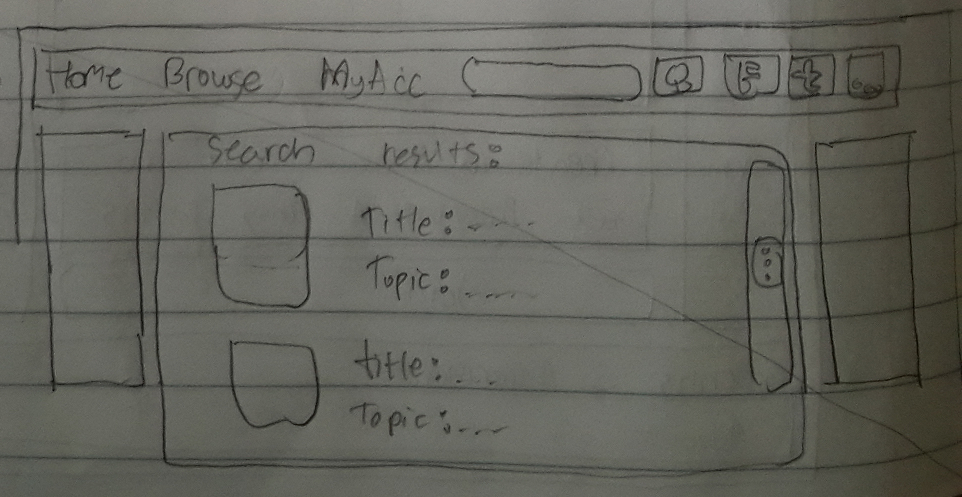 Home Browse MyAcc
Search results:
Title:.....
Topic:.....
title:...
Topic:....